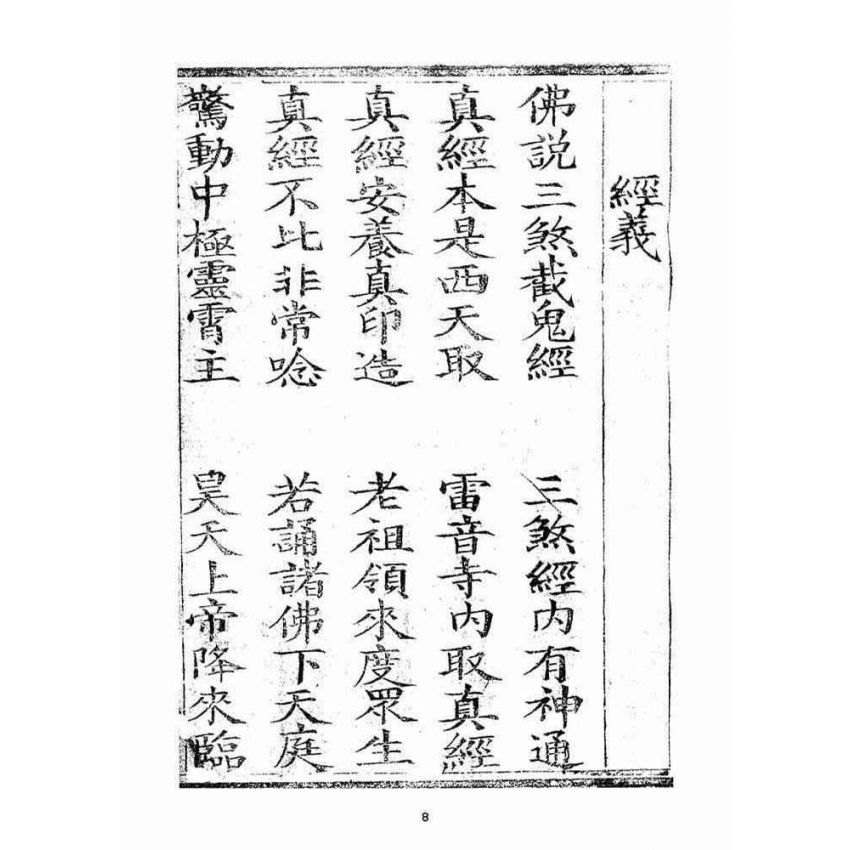 經義
佛説三煞截鬼經　三煞經内有神通
真經本是西天取　雷音寺内取真經
真經安養真印造　老祖領來度眾生
真經不比非常唸　若誦諸佛下天庭
驚動中極靈霄主　昊天上帝降來臨
8